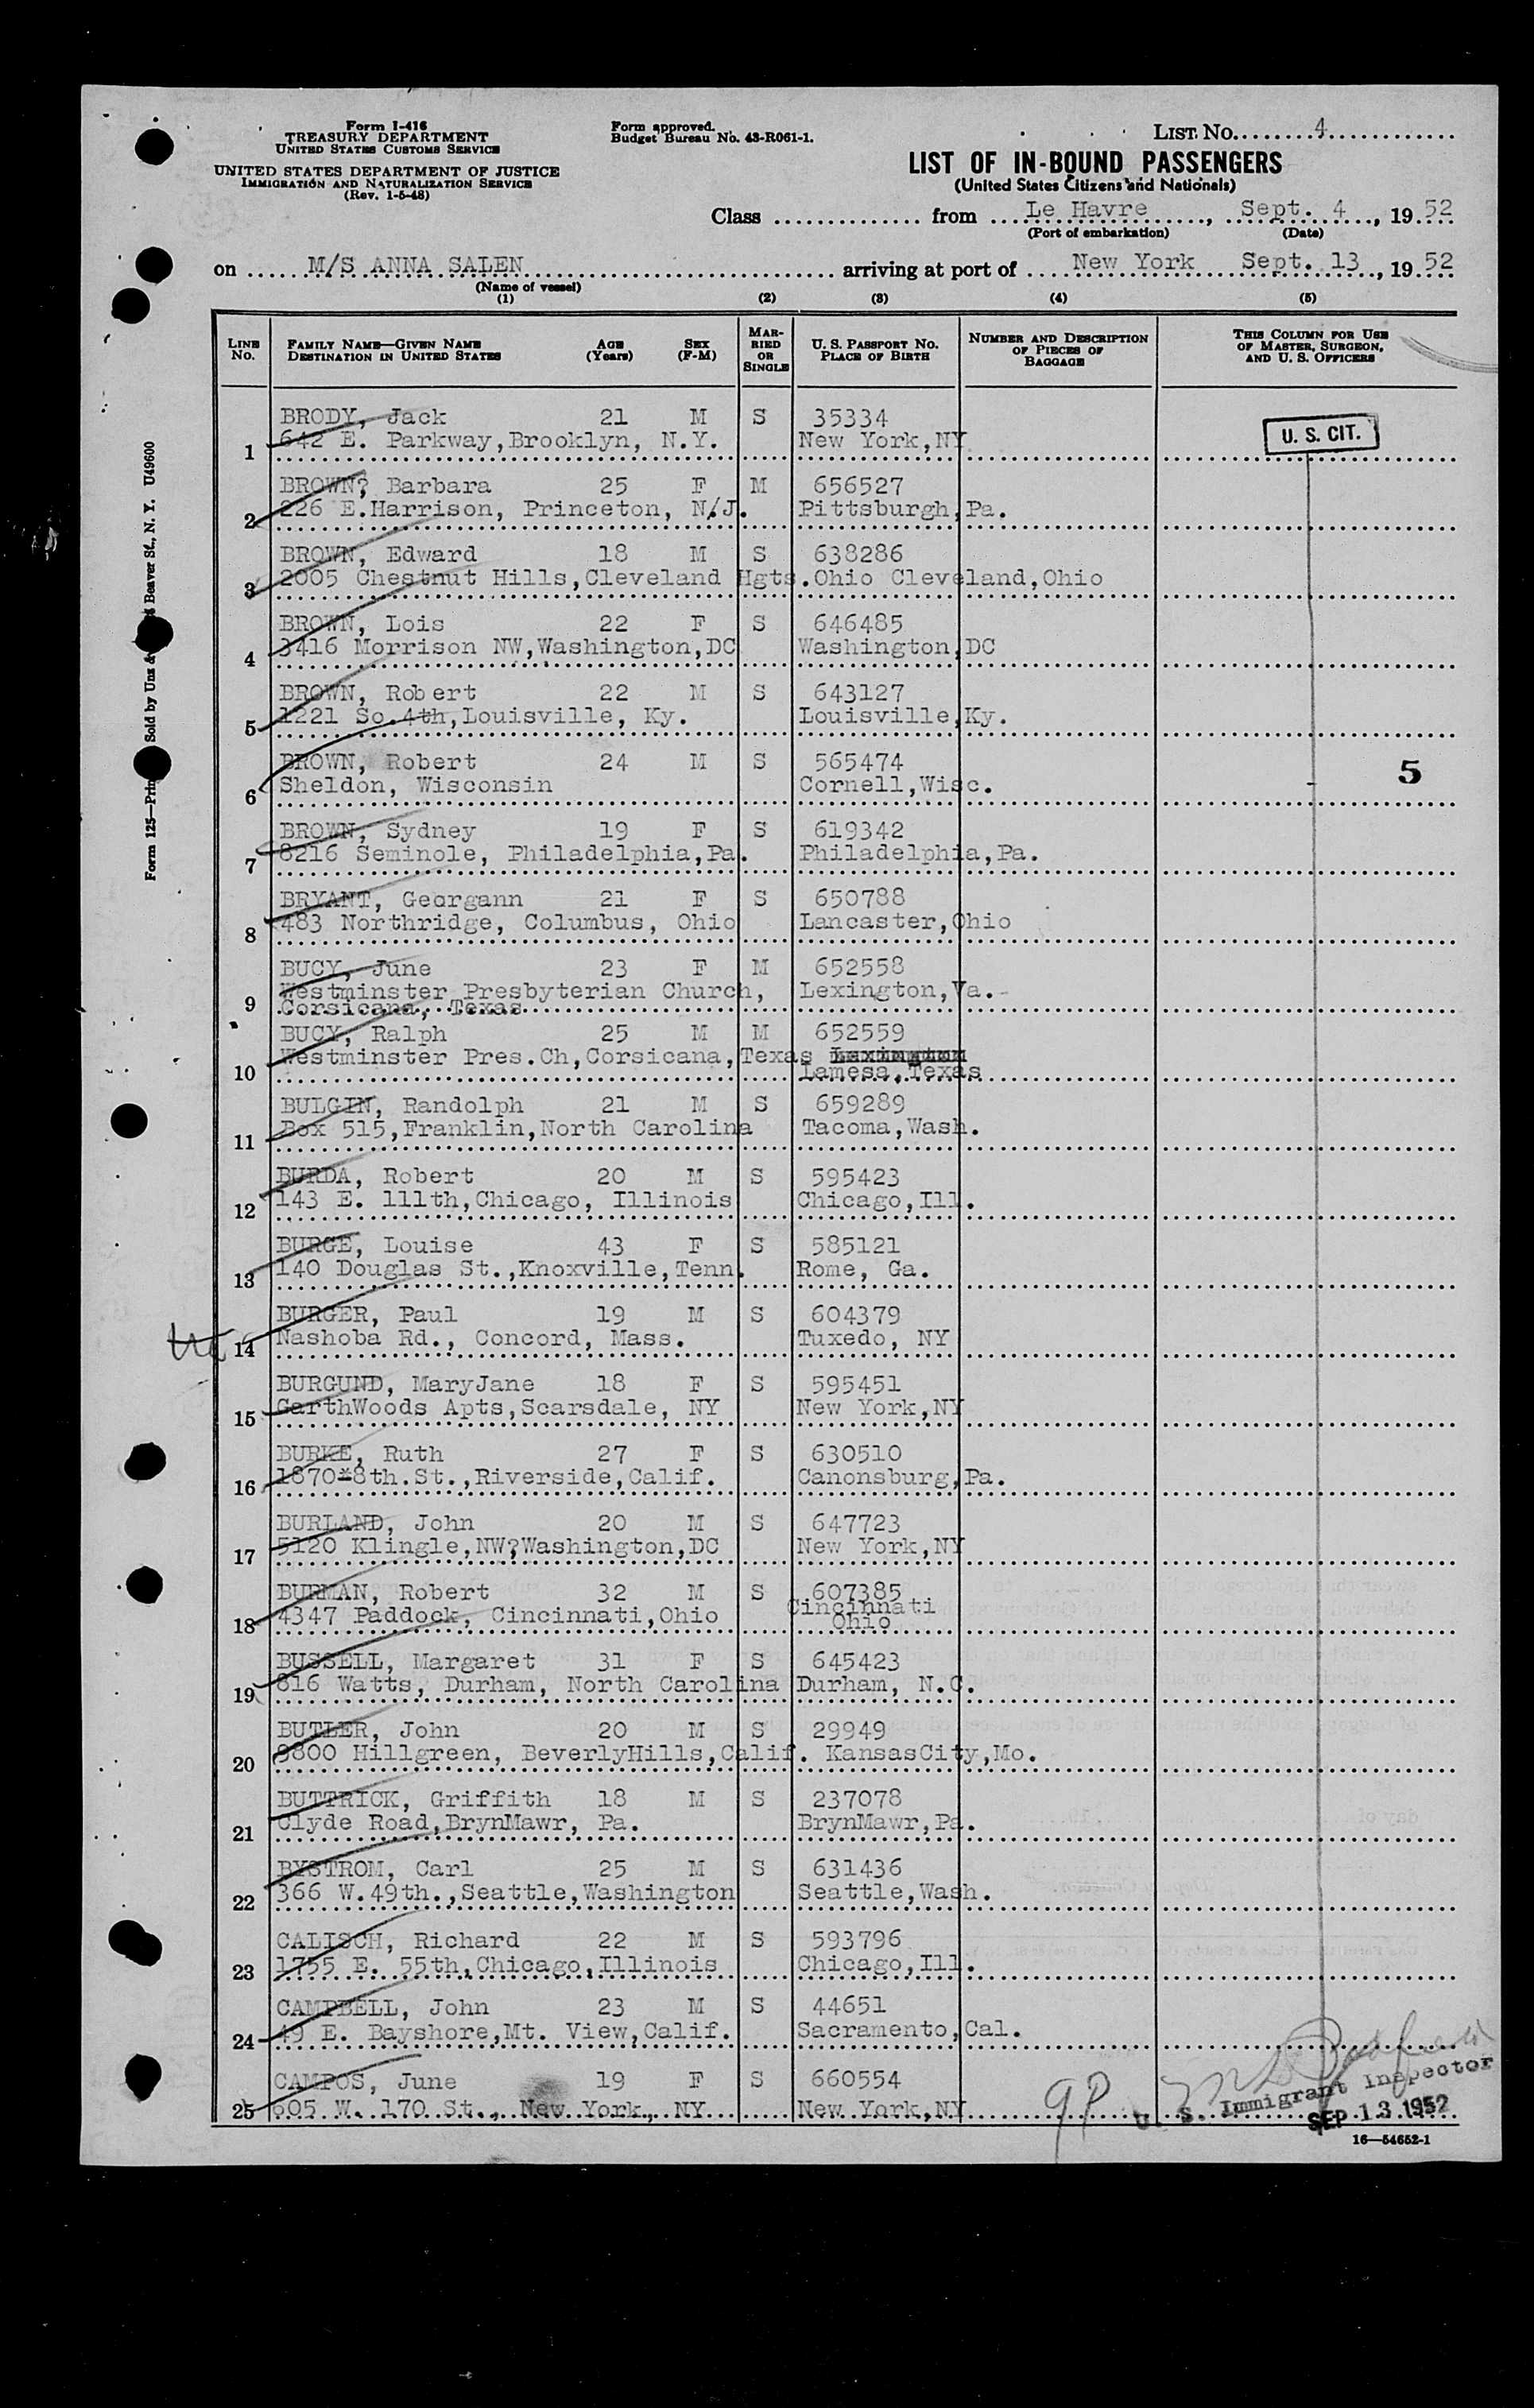 Form I-416
TREASURY DEPARTMENT
UNITED STATES CUSTOMS SERVICE
UNITED STATES DEPARTMENT OF JUSTICE
IMMIGRATION AND NATURALIZATION SERVICE
(Rev. 1-5-48)
Form approved.
Budget Bureau No. 43-R061-1.
LIST NO. 4
LIST OF IN-BOUND PASSENGERS
(United States Citizens and Nationals)
Class from Le Havre, Sept. 4, 19 52
(Port of embarkation) (Date)
on M/S ANNA SALEN arriving at port of New York Sept. 13, 19 52
(Name of vessel)
(1) (2) (3) (4) (5)
LINE NO. FAMILY NAME—GIVEN NAME DESTINATION IN UNITED STATES AGE (Years) SEX (F-M) MARRIED OR SINGLE U. S. PASSPORT NO. PLACE OF BIRTH NUMBER AND DESCRIPTION OF PIECES OF BAGGAGE THIS COLUMN FOR USE OF MASTER, SURGEON, AND U. S. OFFICERS
BRODY, Jack 21 M S 35334
1 642 E. Parkway,Brooklyn, N.Y. New York,NY
U. S. CIT.
BROWN? Barbara 25 F M 656527
2 226 E.Harrison, Princeton, N/J. Pittsburgh,Pa.
BROWN, Edward 18 M S 638286
3 2005 Chestnut Hills,Cleveland Hgts.Ohio Cleveland,Ohio
BROWN, Lois 22 F S 646485
4 3416 Morrison NW,Washington,DC Washington,DC
BROWN, Robert 22 M S 643127
5 1221 So.4th,Louisville, Ky. Louisville,Ky.
BROWN, Robert 24 M S 565474
6 Sheldon, Wisconsin Cornell,Wisc.
5
BROWN, Sydney 19 F S 619342
7 8216 Seminole, Philadelphia,Pa. Philadelphia,Pa.
BRYANT, Georgann 21 F S 650788
8 483 Northridge, Columbus, Ohio Lancaster,Ohio
BUCY, June 23 F M 652558
9 Westminster Presbyterian Church, Lexington,Va.
Corsicana, Texas
BUCY, Ralph 25 M M 652559
10 Westminster Pres.Ch,Corsicana,Texas Lexington
Lamesa,Texas
BULGIN, Randolph 21 M S 659289
11 Box 515,Franklin,North Carolina Tacoma,Wash.
BURDA, Robert 20 M S 595423
12 143 E. 111th,Chicago, Illinois Chicago,Ill.
BURGE, Louise 43 F S 585121
13 140 Douglas St.,Knoxville,Tenn. Rome, Ga.
BURGER, Paul 19 M S 604379
14 Nashoba Rd., Concord, Mass. Tuxedo, NY
BURGUND, MaryJane 18 F S 595451
15 GarthWoods Apts,Scarsdale, NY New York,NY
BURKE, Ruth 27 F S 630510
16 1870-8th.St.,Riverside,Calif. Canonsburg,Pa.
BURLAND, John 20 M S 647723
17 5120 Klingle,NW?Washington,DC New York,NY
BURMAN, Robert 32 M S 607385
18 4347 Paddock, Cincinnati,Ohio Cincinnati
Ohio
BUSSELL, Margaret 31 F S 645423
19 816 Watts, Durham, North Carolina Durham, N.C.
BUTLER, John 20 M S 29949
20 9800 Hillgreen, BeverlyHills,Calif. KansasCity,Mo.
BUTTRICK, Griffith 18 M S 237078
21 Clyde Road,BrynMawr, Pa. BrynMawr,Pa.
BYSTROM, Carl 25 M S 631436
22 366 W.49th.,Seattle,Washington Seattle,Wash.
CALISCH, Richard 22 M S 593796
23 1755 E. 55th,Chicago,Illinois Chicago,Ill.
CAMPBELL, John 23 M S 44651
24 49 E. Bayshore,Mt. View,Calif. Sacramento,Cal.
CAMPOS, June 19 F S 660554
25 605 W. 170 St., New York, NY New York,NY
9P
U. S. Immigrant Inspector
SEP 13 1952
16—54652-1
Form 125—Sold by Beaver St., N. Y. U49600